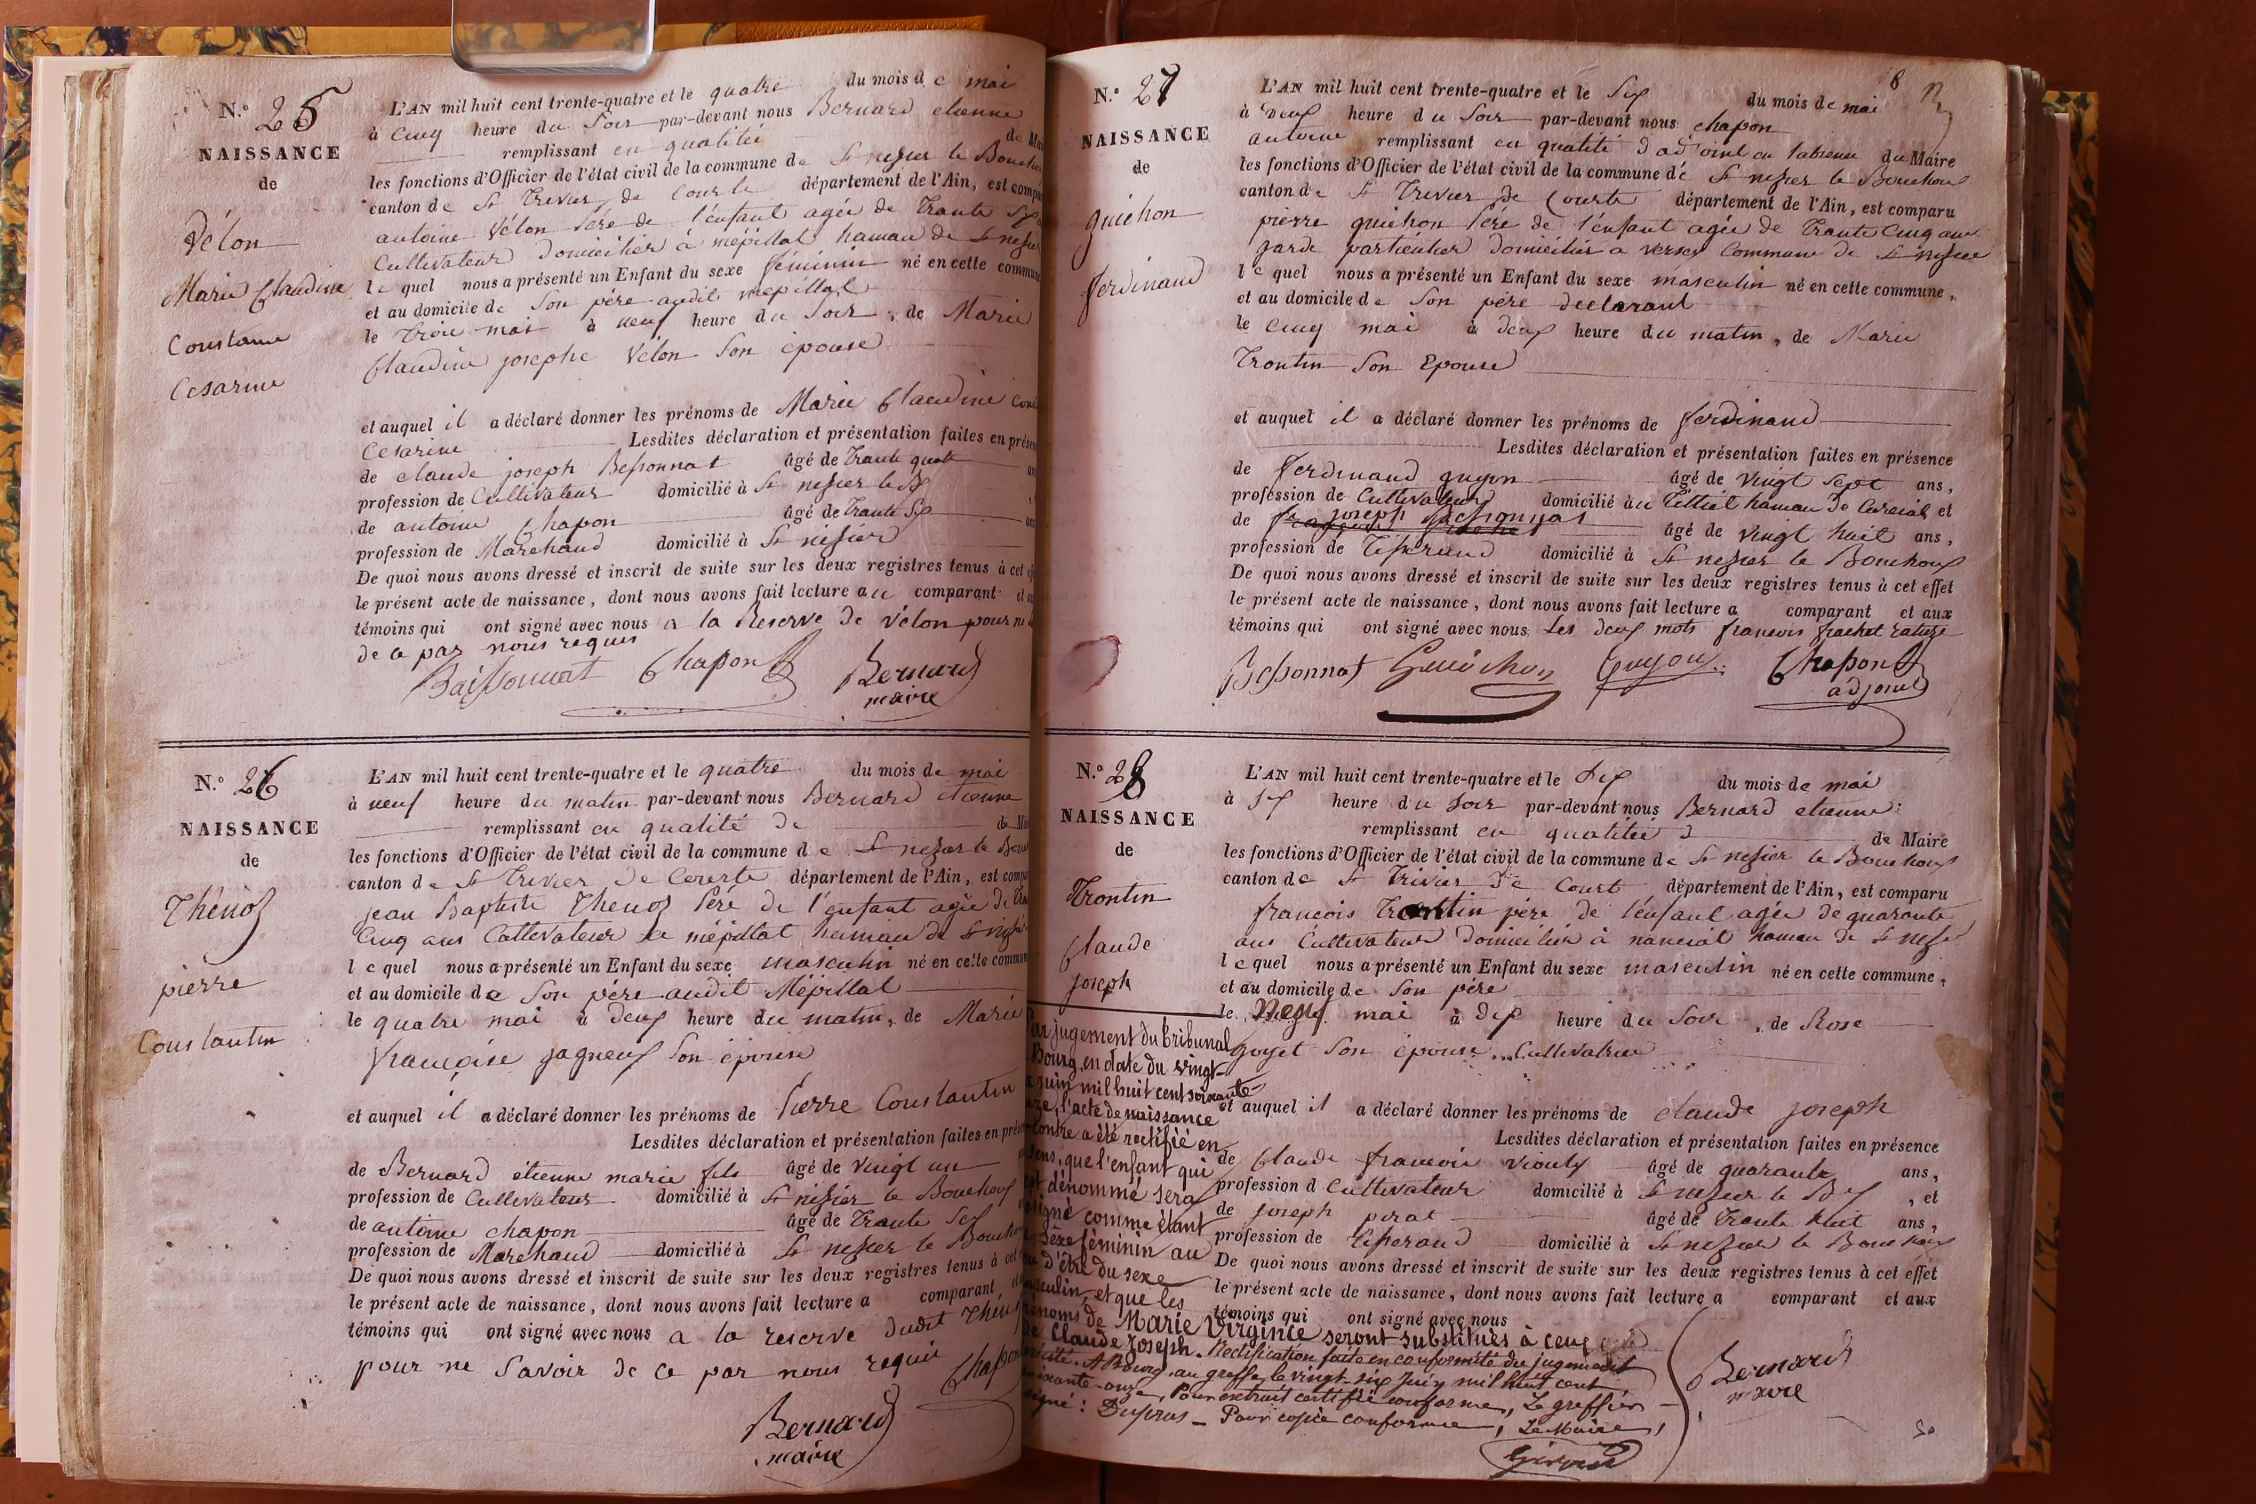 N.º 25
NAISSANCE
de
Vélon
Marie Claudine
Constance
Cesarine
L'AN mil huit cent trente-quatre et le quatre du mois de mai
à cinq heure du Soir par-devant nous Bernard etienne
remplissant en qualité de
les fonctions d'Officier de l'état civil de la commune de St nisier le Bouchoux
canton de St Trivier de Courte département de l'Ain, est comparu
antoine Vélon Pere de l'enfant agée de Trante Six
Cultivateur domicilier à mépillat hamau de St nisier
lequel nous a présenté un Enfant du sexe féminin né en cette commune
et au domicile de Son père audit mépillat
le trois mai à neuf heure du Soir, de Marie
Claudine josephe Vélon Son épouse
et auquel il a déclaré donner les prénoms de Marie Claudine
Cesarine Lesdites déclaration et présentation faites en
de claude joseph Bessonnat âgé de Trante quatr
profession de Cultivateur domicilié à St nisier le Bx
de antoine Chapon âgé de Trante Six
profession de Marchand domicilié à St nisier
De quoi nous avons dressé et inscrit de suite sur les deux registres tenus à cet
le présent acte de naissance, dont nous avons fait lecture au comparant
témoins qui ont signé avec nous a la Reserve de vélon pour ne
de ce par nous requis
Baissonnat Chapon Bernard
maire
N.º 26
NAISSANCE
de
Thénoz
pierre
Constantin
L'AN mil huit cent trente-quatre et le quatre du mois de mai
à neuf heure du matin par-devant nous Bernard etienne
remplissant en qualité de
les fonctions d'Officier de l'état civil de la commune de St nisier le
canton de St Trivier de Courte département de l'Ain, est
jean Baptiste Thenoz Péré de l'enfant agée de
Cinq ans Cultevateur a mépillat hamau de St nisier
lequel nous a présenté un Enfant du sexe masculin né en cette commune
et au domicile de Son père audit Mépillat
le quatre mai à deux heure du matin, de Marie
françoise gagneux Son épouse
et auquel il a déclaré donner les prénoms de Pierre Constantin
Lesdites déclaration et présentation faites en
de Bernard étienne marie fils âgé de vingt un
profession de Cultivateur domicilié à St nisier le Bouchoux
de antoine chapon âgé de Trante Six
profession de Marchand domicilié à St nisier le Bouchoux
De quoi nous avons dressé et inscrit de suite sur les deux registres tenus à cet
le présent acte de naissance, dont nous avons fait lecture a comparant
témoins qui ont signé avec nous a la reserve dudit Thénoz
pour ne Savoir de ce par nous requis Chapon
Bernard
maire
8
N.º 27
NAISSANCE
de
guichon
ferdinand
L'AN mil huit cent trente-quatre et le Six du mois de mai
à deux heure du Soir par-devant nous chapon
antoine remplissant en qualité d'adjoint en labsence du Maire
les fonctions d'Officier de l'état civil de la commune de St nisier le Bouchoux
canton de St Trivier de Courte département de l'Ain, est comparu
pierre guichon Péré de l'enfant agée de Trante Cinq ans
garde particulier domicilier a verses Commune de St nisier
lequel nous a présenté un Enfant du sexe masculin né en cette commune,
et au domicile de Son père declarant
le cinq mai à deux heure du matin, de Marie
Trontin Son Epouse
et auquel il a déclaré donner les prénoms de ferdinand
Lesdites déclaration et présentation faites en présence
de ferdinand guyon âgé de vingt sept ans,
profession de Cultivateur domicilié au Tilliet hamau de Curciat et
joseph Bessonnat
de françois frachet âgé de vingt huit ans,
profession de Tisserand domicilié à St nisier le Bouchoux
De quoi nous avons dressé et inscrit de suite sur les deux registres tenus à cet effet
le présent acte de naissance, dont nous avons fait lecture a comparant et aux
témoins qui ont signé avec nous Les deux mots francois frachet ratuze
Bessonnat Guichon Guyon Chapon
adjoint
N.º 28
NAISSANCE
de
Trontin
Claude
joseph
L'AN mil huit cent trente-quatre et le Dix du mois de mai
à Six heure du Soir par-devant nous Bernard etienne
remplissant en qualitée de Maire
les fonctions d'Officier de l'état civil de la commune de St nisier le Bouchoux
canton de St Trivier de Courte département de l'Ain, est comparu
francois Trontin père de l'enfant agée de quarante
ans Cultevateur domicilier à nanciat hamau de St nisier
lequel nous a présenté un Enfant du sexe masculin né en cette commune,
et au domicile de Son père
le Neuf mai à dix heure du Soir, de Rose
goyet Son épouse Cultivatrice
et auquel il a déclaré donner les prénoms de claude joseph
Lesdites déclaration et présentation faites en présence
de Claude francois vioulx âgé de quarante ans,
profession d Cultivateur domicilié à St nisier le Bx, et
de joseph perat âgé de Trante huit ans,
profession de Tisserand domicilié à St nisier le Bouchoux
De quoi nous avons dressé et inscrit de suite sur les deux registres tenus à cet effet
le présent acte de naissance, dont nous avons fait lecture a comparant et aux
témoins qui ont signé avec nous
Bernard
maire
Par jugement du tribunal
Bourg, en date du vingt-
juin mil huit cent soixante
l'acte de naissance
contre a été rectifié en
sens, que l'enfant qui
est dénommé sera
désigné comme étant
sexe féminin au
d'être du sexe
masculin, et que les
prénoms de Marie Virginie seront substitués à ceux
de Claude Joseph. Rectification faite en conformité du jugement
A Bourg, au greffe, le vingt-six juin mil huit cent
soixante-onze, Pour extrait certifié conforme, Le greffier
signé: Dupras - Pour copie conforme, Le Maire,